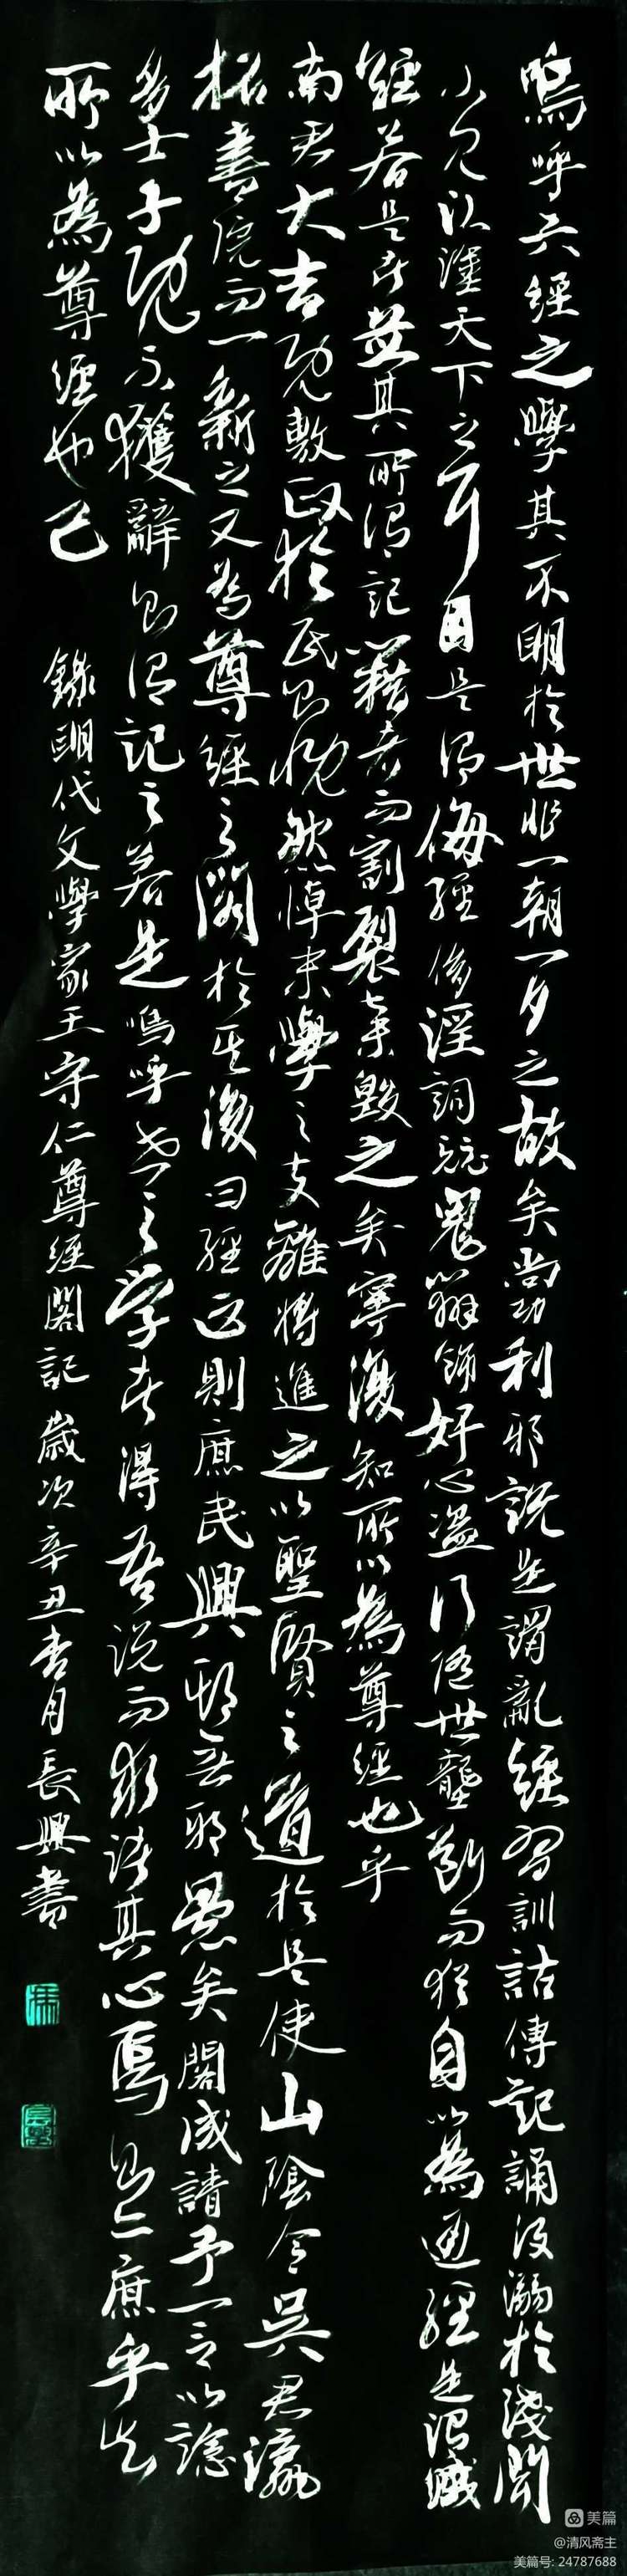 嗚呼六經之學其不明於世非一朝一夕之故矣尚功利邪說是謂亂經習訓詁傳記誦没溺於淺聞
小見以塗天下之耳目是謂侮經侈淫詞競詭辯飾奸心盜行逐世壟斷而猶自以為通經是謂賊
經若是者並其所謂記籍者而割裂棄毀之矣寧復知所以為尊經也乎
南君大吉既敷政於民則慨然悼末學之支離將進之以聖賢之道於是使山陰令吳君瀛
拓書院而一新之又為尊經之閣於其後曰經正則庶民興斯無邪慝矣閣成請予一言以諗
多士予既不獲辭則謂記之若是嗚呼世之学者得吾说而求諸其心焉則亦庶乎知
所以為尊經也已
錄明代文學家王守仁尊經閣記 歲次辛丑杏月 長興書
美篇
@清风斋主
美篇号: 24787688